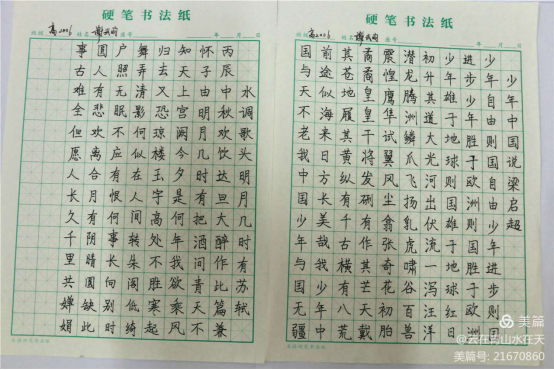 硬笔书法纸
班级 高2006 姓名 座号 年 月 日
少年中国说梁启超
少年自由则国自由少年进步则国
进步少年胜于欧洲则国胜于欧洲
少年雄于地球则国雄于地球红日
初升其道大光河出伏流一泻汪洋
潜龙腾渊鳞爪飞扬乳虎啸谷百兽
震惶鹰隼试翼风尘吸张奇花初胎
矞矞皇皇干将发硎有作其芒天戴
其苍地履其黄纵有千古横有八荒
前途似海来日方长美哉我少年中
国与天不老我中国少年与国无疆
硬笔书法纸
班级 高2006 姓名 座号 年 月 日
水调歌头明月几时有苏轼
丙辰中秋欢饮达旦大醉作此篇兼
怀子由明月几时有把酒问青天不
知天上宫阙今夕是何年我欲乘风
归去又恐琼楼玉宇高处不胜寒起
舞弄清影何似在人间转朱阁低绮
户照无眠不应有恨何事长向别时
圆人有悲欢离合月有阴晴圆缺此
事古难全但愿人长久千里共婵娟
美篇
@云在青山水在天
美篇号: 21670860